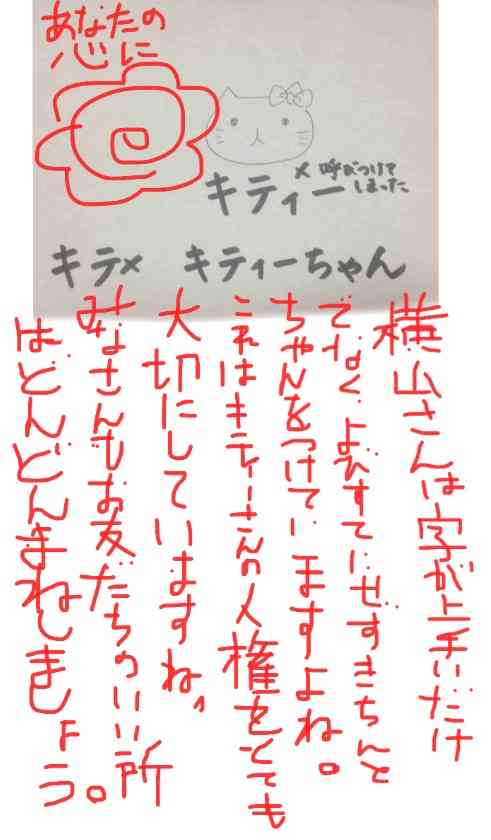 あなたの
心に
キティー
×呼びつけて
しまった
キテ×
キティーちゃん
横山さんは字が上手いだけ
でなくよびすてにせずきちんと
ちゃんをつけていますよね。
これはキティーさんの人権をとても
大切にしていますね、
みなさんもお友だちのいい所
はどんどんまねしましょう。